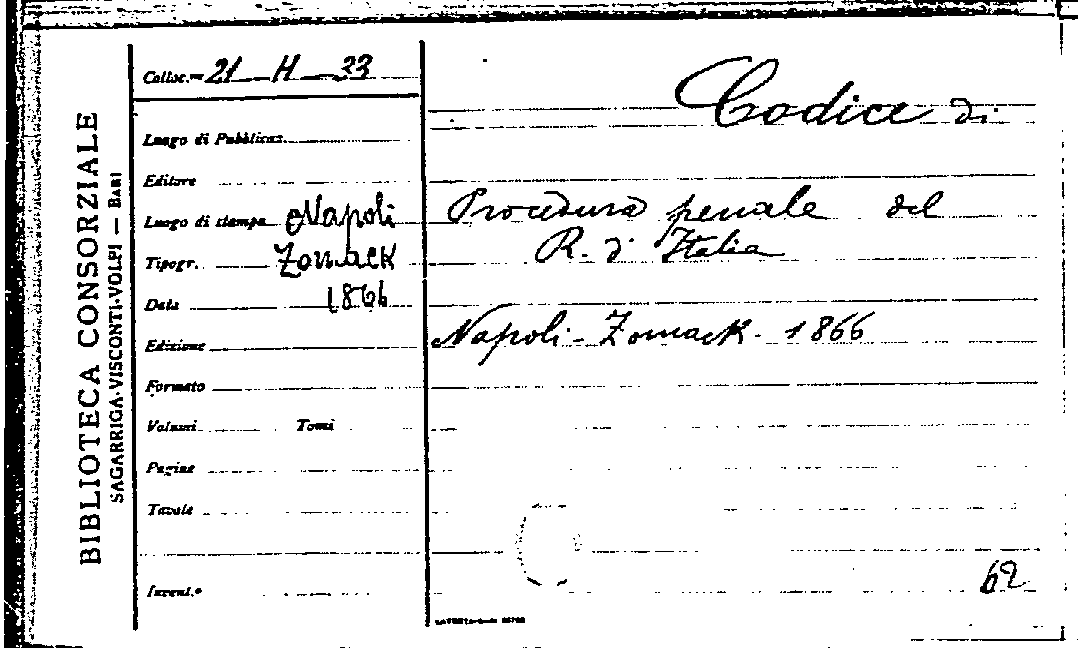 BIBLIOTECA CONSORZIALE
SAGARRIGA-VISCONTI-VOLPI — BARI
Colloc. 21 H 33
Luogo di Pubblicaz.
Editore
Luogo di stampa Napoli
Tipogr. Zomack
Data 1866
Edizione
Formato
Volumi Tomi
Pagine
Tavole
Invent.º
Codice di
Procedura penale del
R. di Italia
Napoli - Zomack - 1866
62